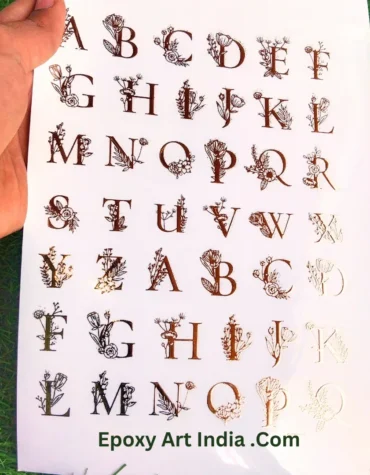 A B C D E F
G H I J K L
M N O P Q R
S T U V W X
Y Z A B C D
F G H I J K
L M N O P Q
Epoxy Art India .Com